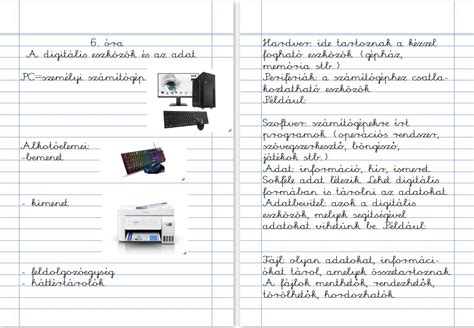 6. óra
A digitális eszközök és az adat
PC=személyi számítógép
Alkotóelemei:
-bemenet
- kimenet
- feldolgozóegység
- háttértárolók
Hardver: ide tartoznak a kézzel
fogható eszközök (gépház,
memória stb.)
Perifériák: a számítógéphez csatla-
koztatható eszközök
Például:
Szoftver: számítógépekre írt
programok (operációs rendszer,
szövegszerkesztő, böngésző,
játékok stb.)
Adat: információ, hír, ismeret.
Sokféle adat létezik. Lehet digitális
formában is tárolni az adatokat.
Adatbevitel: azok a digitális
eszközök, melyek segítségével
adatokat vihetünk be. Például:
Fájl: olyan adatokat, informáci-
ókat tárol, amelyek összetartoznak.
A fájlok menthetők, rendezhetők,
törölhetők, hordozhatók.